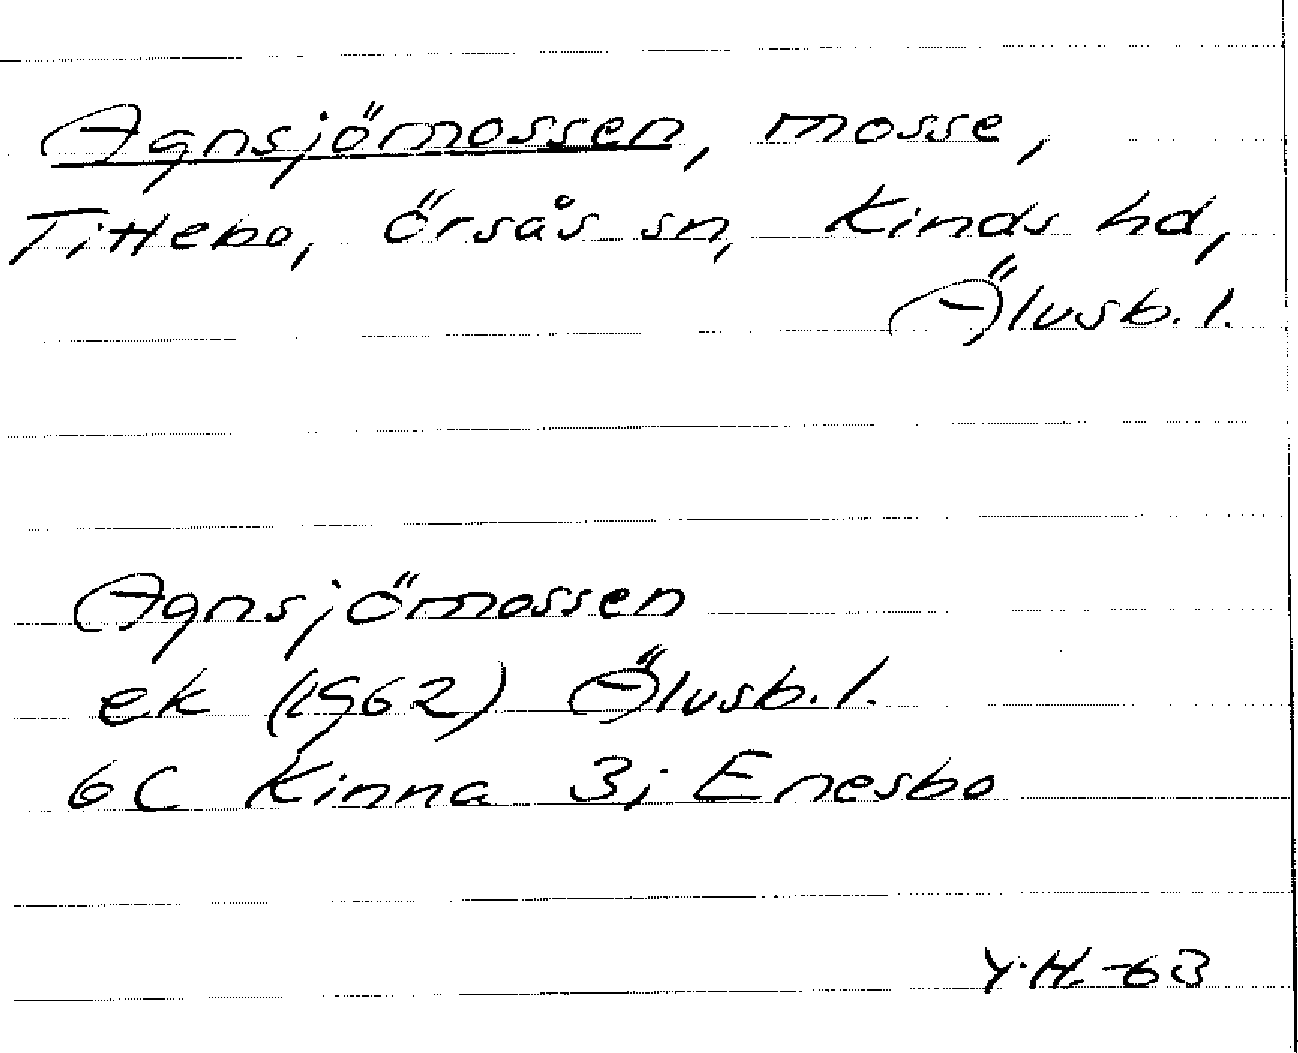 Agnsjömossen, mosse,
Tittebo, Örsås sn, Kinds hd,
Älvsb. l.
Agnsjömossen
ek (1962) Älvsb. l.
6C Kinna 3j Enesbo
Y.H. -63